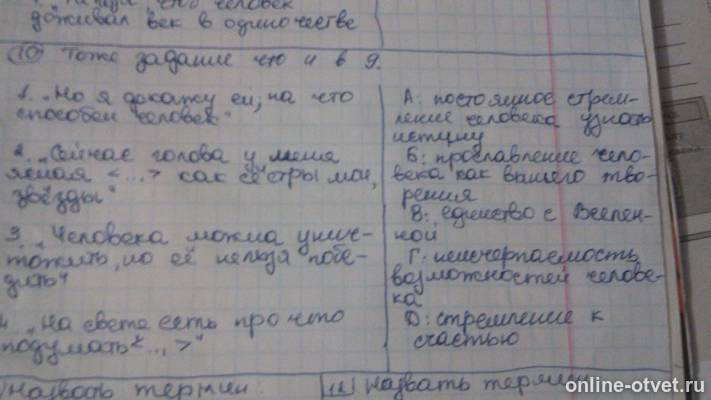 что человек
доживал век в одиночестве
(10) Тоже задание что и в 9.
1. „Но я докажу ей, на что
способен человек"
2. „Сейчас голова у меня
ясная <...> как сёстры мои,
звёзды"
3. „Человека можна унич-
тожить, но её нельзя побе-
дить"
4. „На свете есть про что
подумать <...>"
А: постоянное стрем-
ление человека узнать
истину
Б: прославление чело-
века как вышего тво-
рения
В: единство с Вселен-
ной
Г: неисчерпаемость
возможностей челове-
ка
D: стремление к
счастью
Назвать термин:
11 Назвать термин
online-otvet.ru